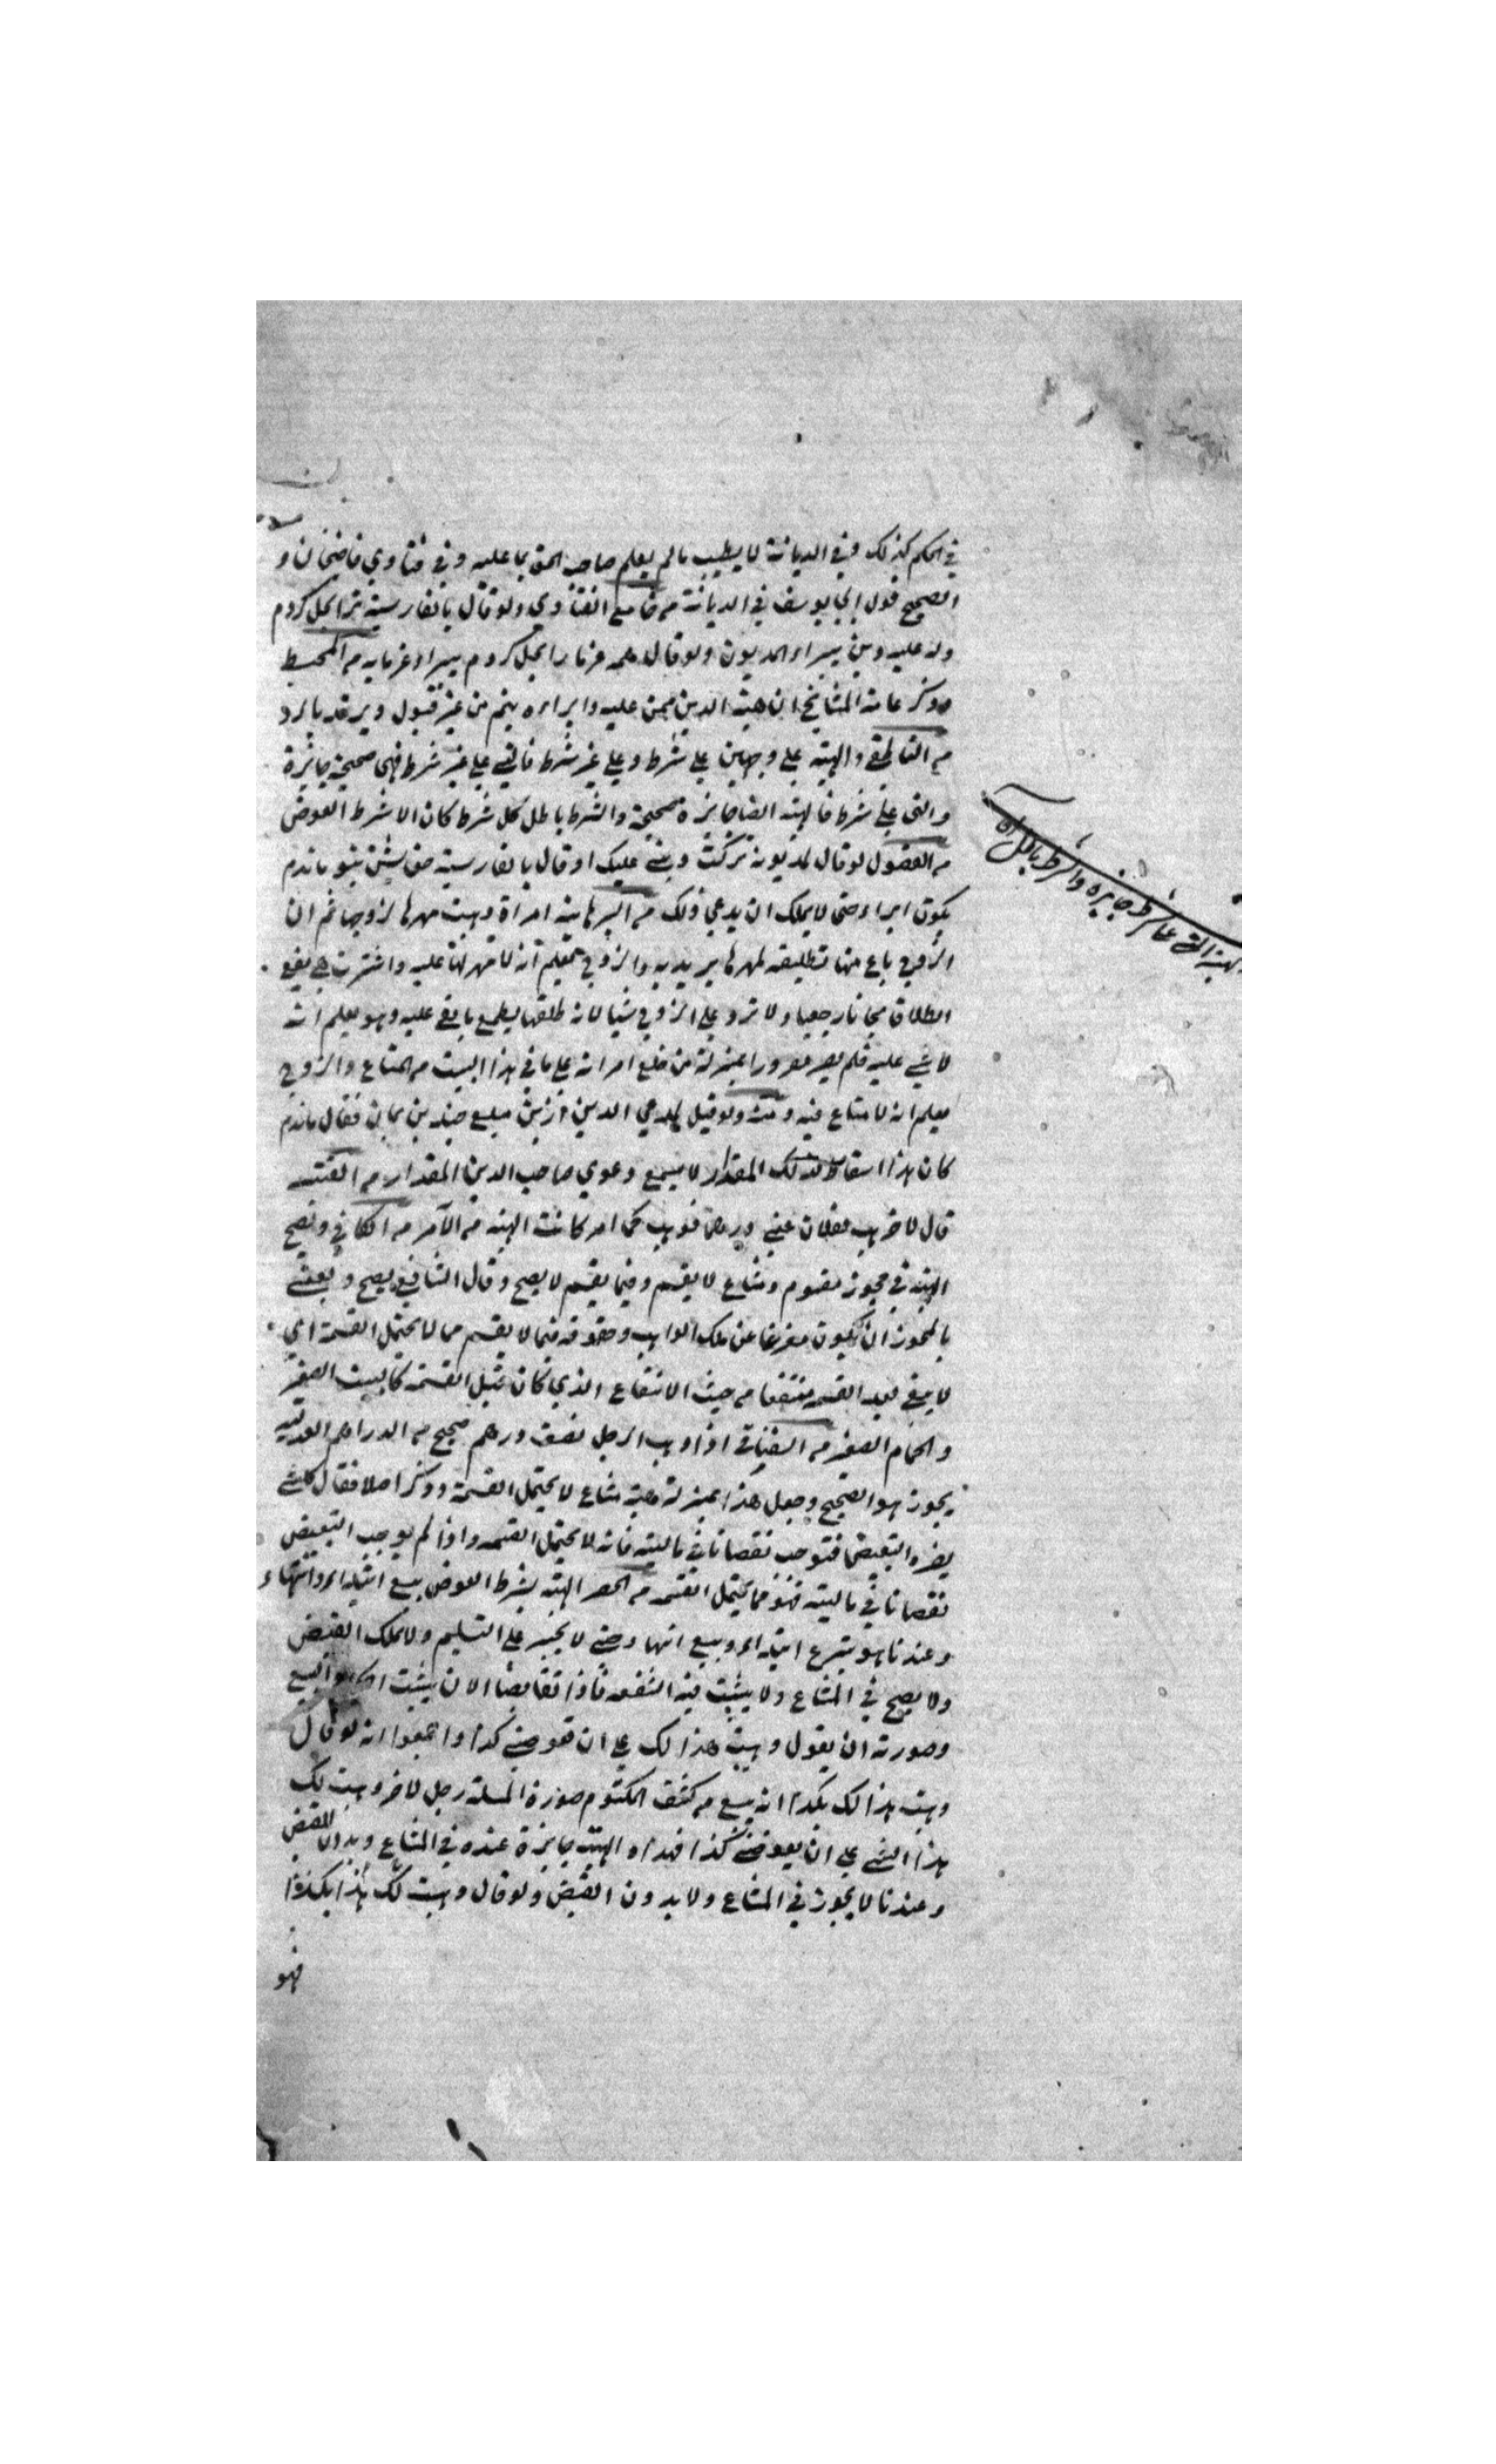 في الحكم كذلك وفي الديانة لا يطيب ما لم يعلم صاحب الحق بما عليه وفي فتاوي قاضيخان و
الصحيح قول ابي يوسف في الديانة من جامع الفتاوي ولو قال بالفارسية ترا بحل كردم
وله عليه دين يبراء المديون ولو قال همه غرما را بحل كردم يبراء غرمايه من المحيط
وذكر عامة المشايخ ان هبة الدين ممن عليه وابراءه يتم من غير قبول ويرتد بالرد
والهبة على وجهين على شرط وعلى غير شرط فالتي على غير شرط فهي صحيحة جائزة
والتي على شرط فالهبة ايضا جائزة صحيحة والشرط باطل كل شرط كان الا شرط العوض
من الفصول لو قال لمديونه تركت ديني عليك او قال بالفارسية حق خويش بتو ماندم
يكون ابراء حتى لا يملك ان يدعي ذلك من البرهانية امراة وهبت مهرها لزوجها ثم ان
الزوج باع منها تطليقه لمهرها والزوج يعلم انه لا مهر لها عليه واشترت هي يقع
الطلاق مجانا رجعيا ولا ترد على الزوج شيا لانه طلقها بطمع ما بقي عليه وهو يعلم انه
لا شي عليه فلم يصر مغرورا بمنزلة من خلع امراته على ما في هذا البيت من المتاع والزوج
يعلم انه لا متاع فيه ومنه ولو قيل لمدعي الدين ازين مبلغ چندين بمان فقال ماندم
كان هذا اسقاطا لذلك المقدار لا يسمع دعوي صاحب الدين المقدار من القنية
قال لاخر هب لفلان عني درهما فوهب كما امر كانت الهبة من الآمر من الكافي وتصح
الهبة في محوز مقسوم ومشاع لا يقسم وفيما يقسم لا يصح وقال الشافعي يصح ويعني
بالمحوز ان يكون مفرغا عن ملك الواهب وحقوقه فيما لا يقسم مما لا يحتمل القسمة اي
لا يبقي بعد القسمة منتفعا من حيث الانتفاع الذي كان قبل القسمة كالبيت الصغير
والحمام الصغير من اذا وهب الرجل نصف درهم صحيح من الدراهم العدلية
يجوز هو الصحيح وجعل هذا بمنزلة هبة مشاع لا يحتمل القسمة وذكر اصلا فقال كل شي
يضره التبعيض فتوجب نقصانا في ماليته فانه لا يحتمل القسمة واذا لم يوجب التبعيض
نقصانا في ماليته فهو مما يحتمل القسمة من الحصر الهبة بشرط العوض بيع ابتداء وانتهاء
وعندنا هو تبرع ابتداء وبيع انتهاء حتى لا يجبر على التسليم ولا يملك القبض
ولا يصح في المشاع ولا يثبت فيه الشفعة فاذا تقابضا الان يثبت البيع
وصورته ان يقول وهبت هذا لك على ان تعوضني كذا واجمعوا انه لو قال
وهبت هذا لك بكذا انه بيع من كشف المكتوم صورة المسلة رجل لاخر وهبت لك
هذا الشي على ان يعوضني كذا فهذه الهبة جائزة عنده في المشاع وبدون القبض
وعندنا لا يجوز في المشاع ولا بدون القبض ولو قال وهبت لك هذا بكذا
فهو
الهبة التي على شرط جايزة والشرط باطل